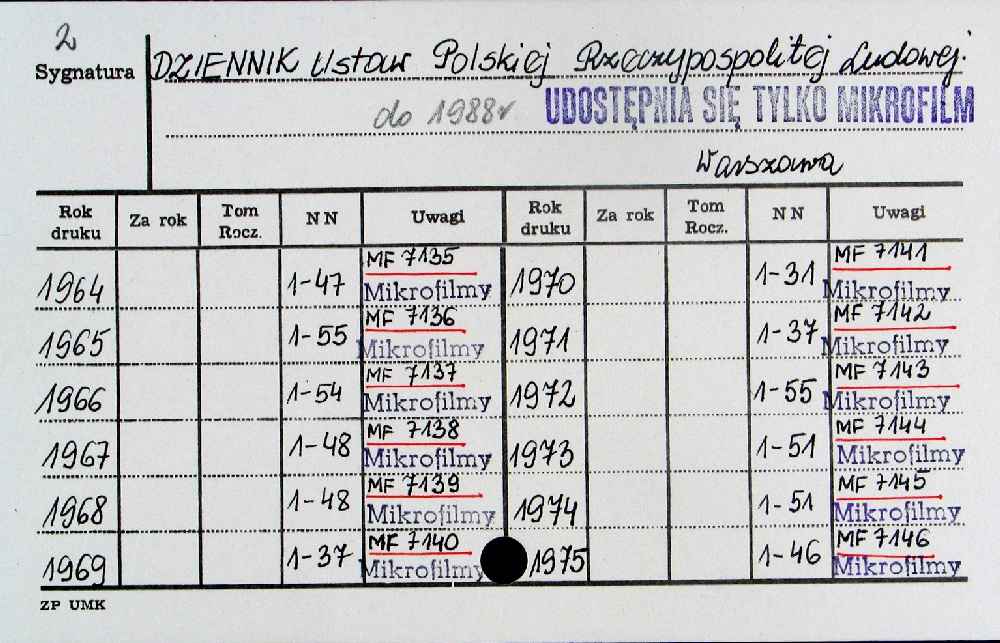 2
Sygnatura DZIENNIK Ustaw Polskiej Rzeczypospolitej Ludowej.
do 1988r UDOSTĘPNIA SIĘ TYLKO MIKROFILM
Warszawa
Rok druku Za rok Tom Rocz. NN Uwagi Rok druku Za rok Tom Rocz. NN Uwagi
1964 1-47 MF 7135 Mikrofilmy 1970 1-31 MF 7141 Mikrofilmy
1965 1-55 MF 7136 Mikrofilmy 1971 1-37 MF 7142 Mikrofilmy
1966 1-54 MF 7137 Mikrofilmy 1972 1-55 MF 7143 Mikrofilmy
1967 1-48 MF 7138 Mikrofilmy 1973 1-51 MF 7144 Mikrofilmy
1968 1-48 MF 7139 Mikrofilmy 1974 1-51 MF 7145 Mikrofilmy
1969 1-37 MF 7140 Mikrofilmy 1975 1-46 MF 7146 Mikrofilmy
ZP UMK